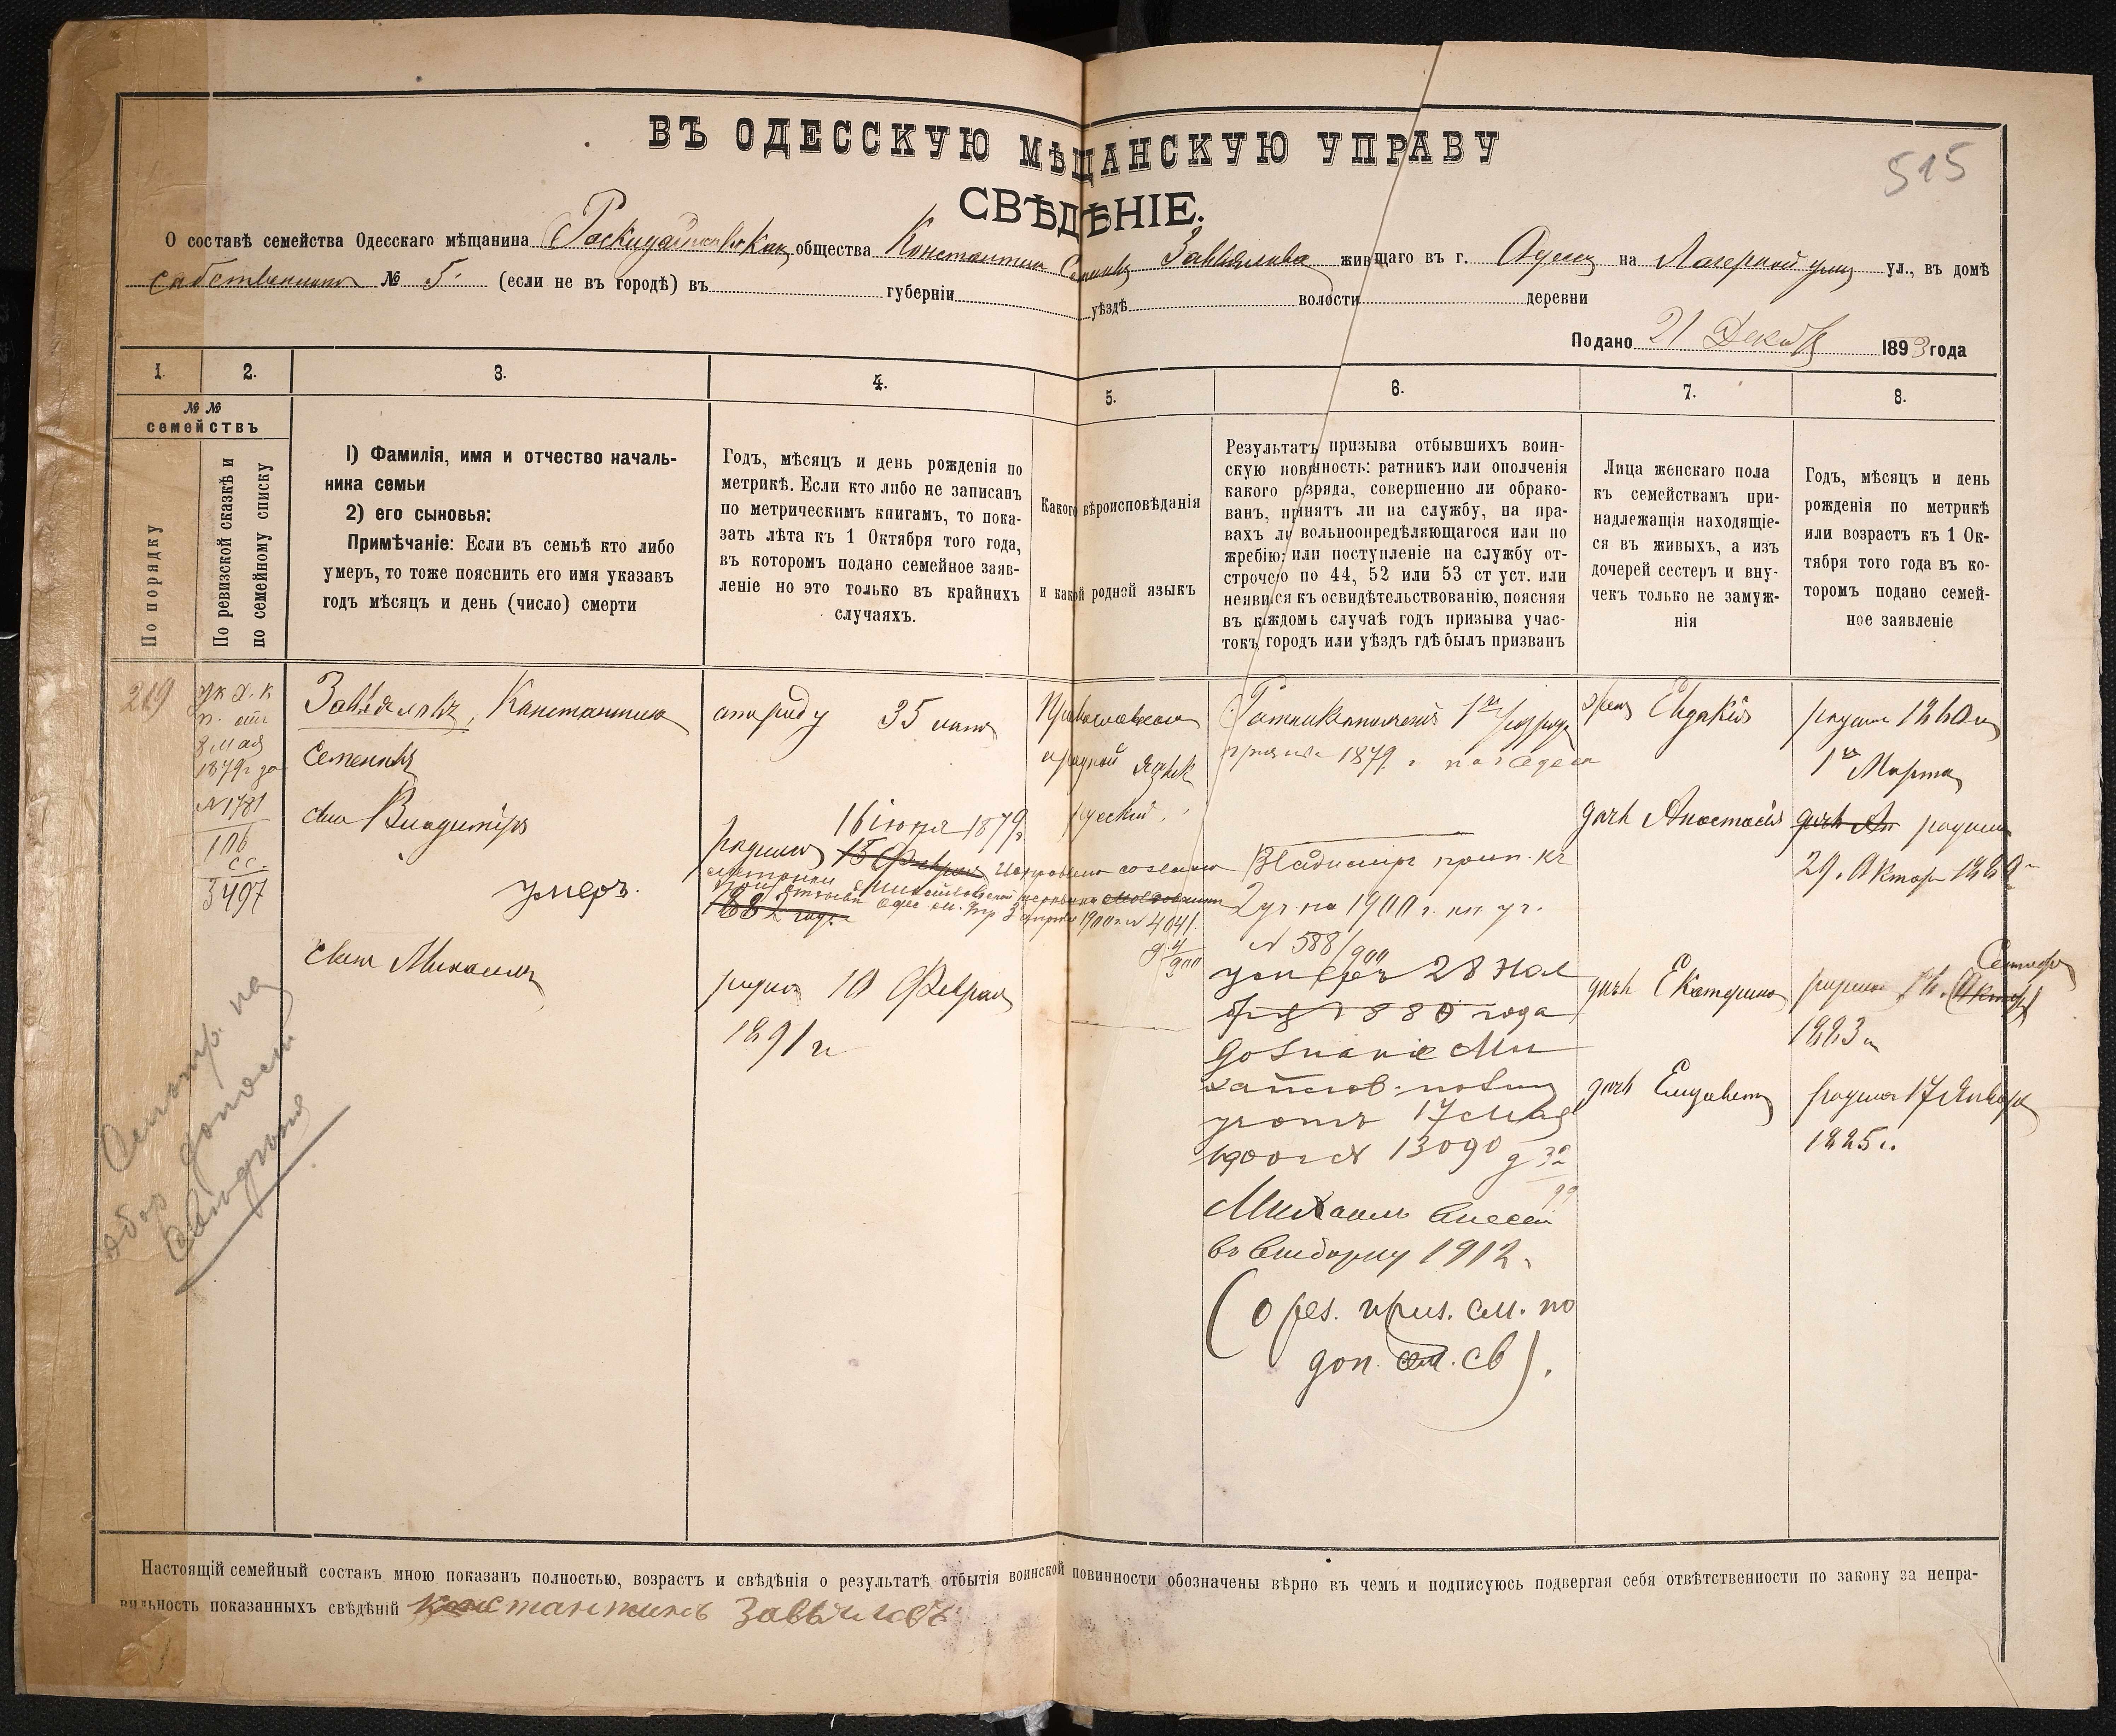 515
ВЪ ОДЕССКУЮ МѢЩАНСКУЮ УПРАВУ
СВѢДѢНІЕ.
О составѣ семейства Одесскаго мѣщанина общества Константина Завьялова живщаго въ г. Одессѣ на Лагерной улиц ул., въ домѣ
собственномъ № 5. (если не въ городѣ) въ губерніи уѣздѣ волости деревни
Подано 21 Декаб 1893 года
1.
2.
3.
4.
5.
6.
7.
8.
№ №
семействъ
По порядку
По ревизской сказкѣ и
по семейному списку
1) Фамилія, имя и отчество началь-
ника семьи
2) его сыновья:
Примѣчаніе: Если въ семьѣ кто либо
умеръ, то тоже пояснить его имя указавъ
годъ мѣсяцъ и день (число) смерти
Годъ, мѣсяцъ и день рожденія по
метрикѣ. Если кто либо не записанъ
по метрическимъ книгамъ, то пока-
зать лѣта къ 1 Октября того года,
въ которомъ подано семейное заяв-
леніе но это только въ крайнихъ
случаяхъ.
Какого вѣроисповѣданія
и какой родной языкъ
Результатъ призыва отбывшихъ воин-
скую повинность: ратникъ или ополченія
какого рзряда, совершенно ли обрако-
ванъ, принятъ ли на службу, на пра-
вахъ ли вольноопредѣляющагося или по
жребію: или поступленіе на службу от-
строчено по 44, 52 или 53 ст уст. или
неявился къ освидѣтельствованію, поясняя
въ каждомъ случаѣ годъ призыва учас-
токъ городъ или уѣздъ гдѣ былъ призванъ
Лица женскаго пола
къ семействамъ при-
надлежащія находящіе-
ся въ живыхъ, а изъ
дочерей сестеръ и вну-
чекъ только не замуж-
нія
Годъ, мѣсяцъ и день
рожденія по метрикѣ
или возрастъ къ 1 Ок-
тября того года въ ко-
торомъ подано семей-
ное заявленіе
219
ук х. к
п. отъ
8 мая
1879 г за
№ 1781
106
сс.
3497
Завьяловъ, Константинъ
Семеновъ
отъ роду 35 летъ
Православнаго
и родной языкъ
русскій.
1879 г.
жена Евдокія
родил 1860 г
1го Марта
сынъ Владиміръ
умеръ.
16 іюня 1879 г.
родился 15 Февраля Исправлено согласно
1900 г. № 4041.
Владимиръ прип. къ
2 уч. на 1900 г. по уч.
№ 588/900
умеръ 28 ноя
1880 года
дознание Ми
хайлов.
участ 17 мая
1900 г № 13090
дочь Анастасія
родилась
29. Октяр 1880 г
сынъ Михаилъ
родил 10 Февраля
1891 г
дочь Екатерина
Сентябр
1883 г
дочь Елизавета
родилась 17 Января
1885 г.
Михаилъ внесен
въ выборку 1912.
(о рез. приз. см. по
доп. сем. св).
Настоящій семейный составъ мною показанъ полностью, возрастъ и свѣдѣнія о результатѣ отбытія воинской повинности обозначены вѣрно въ чемъ и подписуюсь подвергая себя отвѣтственности по закону за непра-
вильность показанныхъ свѣдѣній Константинъ Завьяловъ